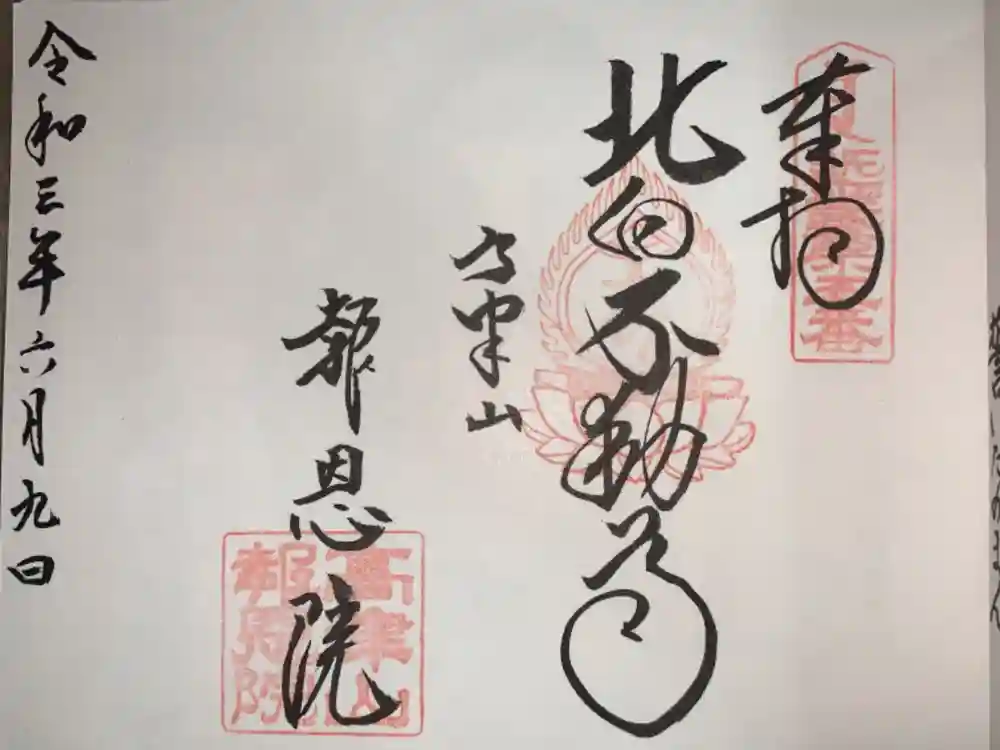 奉拝
北向不動尊
高津山
報恩院
高津山
報恩院
令和三年六月九日